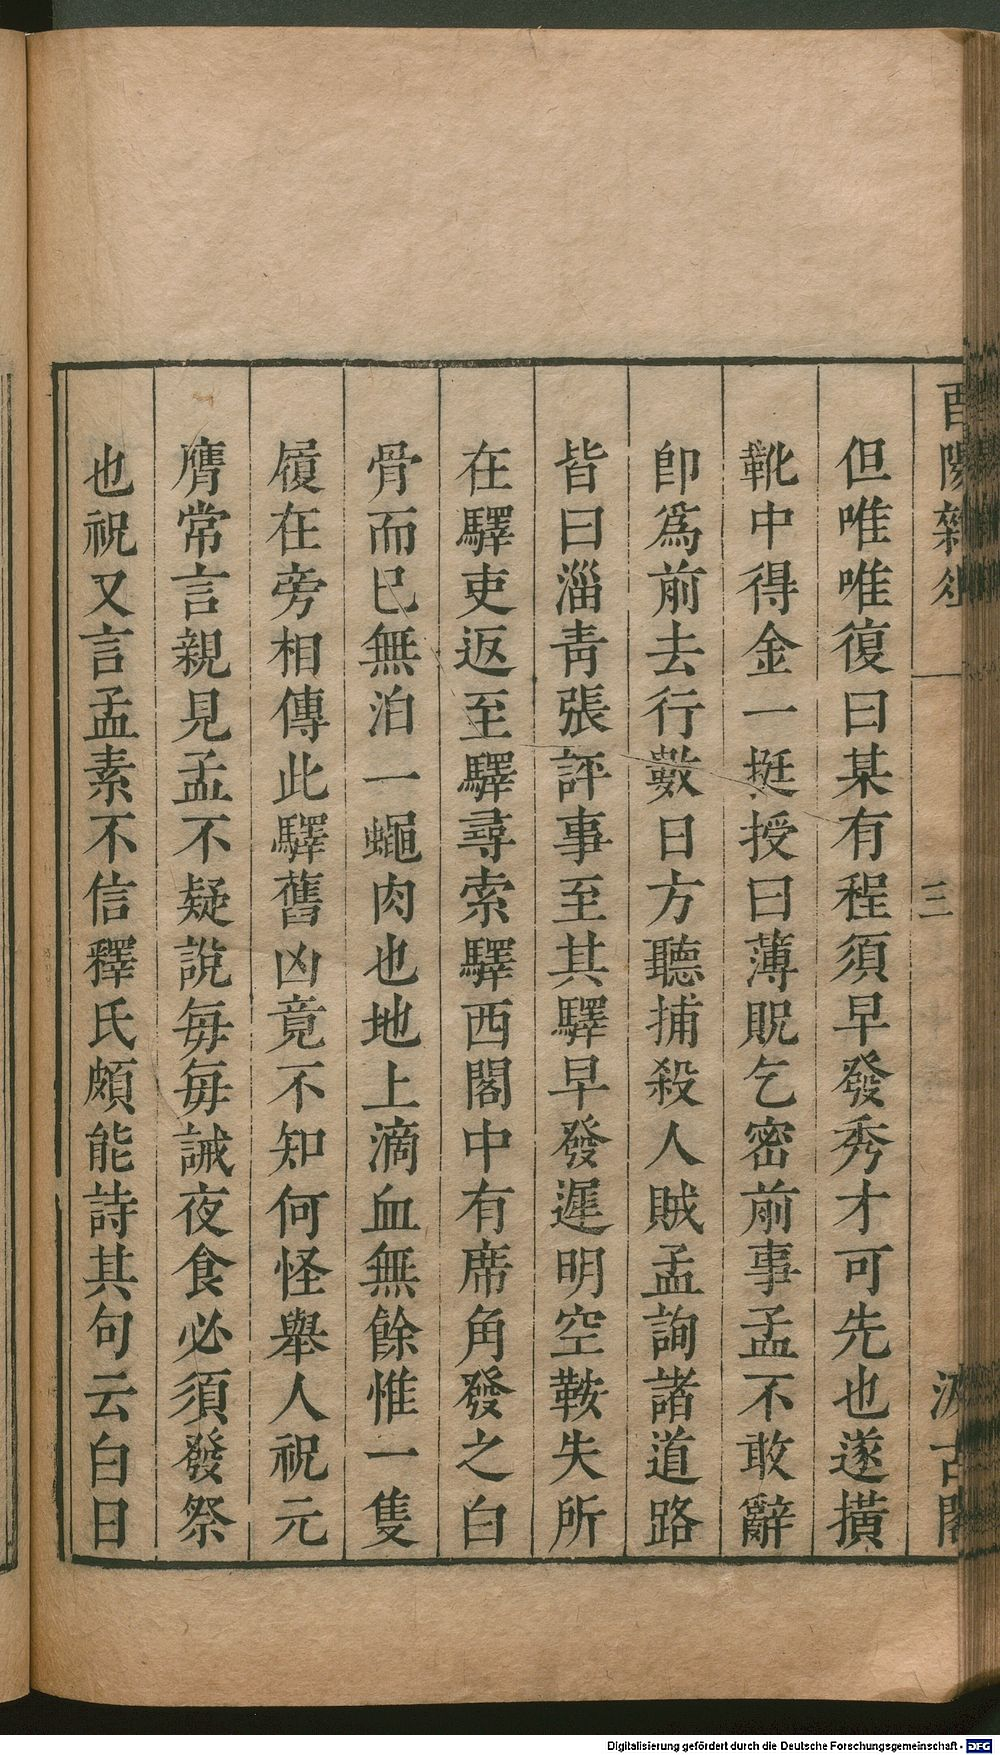 酉陽雜俎
三
汲古閣
但唯唯復曰某有程須早發秀才可先也遂摸
靴中得金一挺授曰薄貺乞密前事孟不敢辭
卽爲前去行數日方聽捕殺人賊孟詢諸道路
皆曰淄靑張評事至其驛早發遲明空鞍失所
在驛吏返至驛尋索驛西閣中有席角發之白
骨而已無泊一蠅肉也地上滴血無餘惟一隻
履在旁相傳此驛舊凶竟不知何怪舉人祝元
膺常言親見孟不疑說每每誡夜食必須發祭
也祝又言孟素不信釋氏頗能詩其句云白日
Digitalisierung gefördert durch die Deutsche Forschungsgemeinschaft - DFG